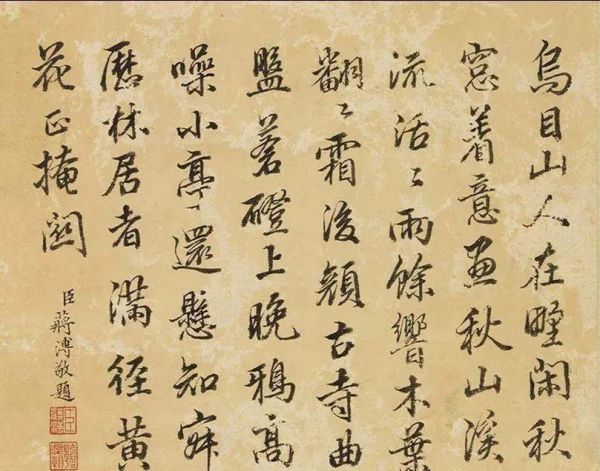 烏目山人在野閑秋
窓著意畫秋山溪
流活〻雨餘響木葉
翻〻霜後顏古寺曲
盤蒼磴上晚鴉高
噪小亭還懸知寂
歷林居者滿徑黃
花正掩關
臣蔣溥敬題